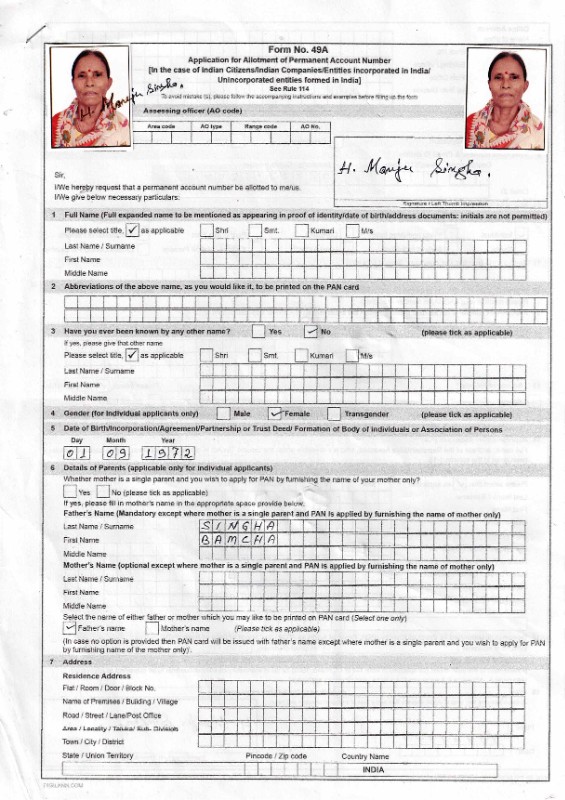 Form No. 49A
Application for Allotment of Permanent Account Number
[In the case of Indian Citizens/Indian Companies/Entities incorporated in India/
Unincorporated entities formed in India]
See Rule 114
To avoid mistake (s), please follow the accompanying instructions and examples before filling up the form
Assessing officer (AO code)
Area code AO type Range code AO No.
H. Manju Singha.
H. Manju Singha.
Signature / Left Thumb Impression
Sir,
I/We hereby request that a permanent account number be allotted to me/us.
I/We give below necessary particulars:
1 Full Name (Full expanded name to be mentioned as appearing in proof of identity/date of birth/address documents: initials are not permitted)
Please select title, ✓ as applicable Shri Smt. Kumari M/s
Last Name / Surname
First Name
Middle Name
2 Abbreviations of the above name, as you would like it, to be printed on the PAN card
3 Have you ever been known by any other name? Yes ✓ No (please tick as applicable)
If yes, please give that other name
Please select title, ✓ as applicable Shri Smt. Kumari M/s
Last Name / Surname
First Name
Middle Name
4 Gender (for Individual applicants only) Male ✓ Female Transgender (please tick as applicable)
5 Date of Birth/Incorporation/Agreement/Partnership or Trust Deed/ Formation of Body of Individuals or Association of Persons
Day Month Year
01 09 1972
6 Details of Parents (applicable only for individual applicants)
Whether mother is a single parent and you wish to apply for PAN by furnishing the name of your mother only?
Yes No (please tick as applicable)
If yes, please fill in mother's name in the appropriate space provide below.
Father's Name (Mandatory except where mother is a single parent and PAN is applied by furnishing the name of mother only)
Last Name / Surname SINGHA
First Name BAMCHA
Middle Name
Mother's Name (optional except where mother is a single parent and PAN is applied by furnishing the name of mother only)
Last Name / Surname
First Name
Middle Name
Select the name of either father or mother which you may like to be printed on PAN card (Select one only)
✓ Father's name Mother's name (Please tick as applicable)
(In case no option is provided then PAN card will be issued with father's name except where mother is a single parent and you wish to apply for PAN
by furnishing name of the mother only).
7 Address
Residence Address
Flat / Room / Door / Block No.
Name of Premises / Building / Village
Road / Street / Lane/Post Office
Area / Locality / Taluka/ Sub- Division
Town / City / District
State / Union Territory Pincode / Zip code Country Name
INDIA